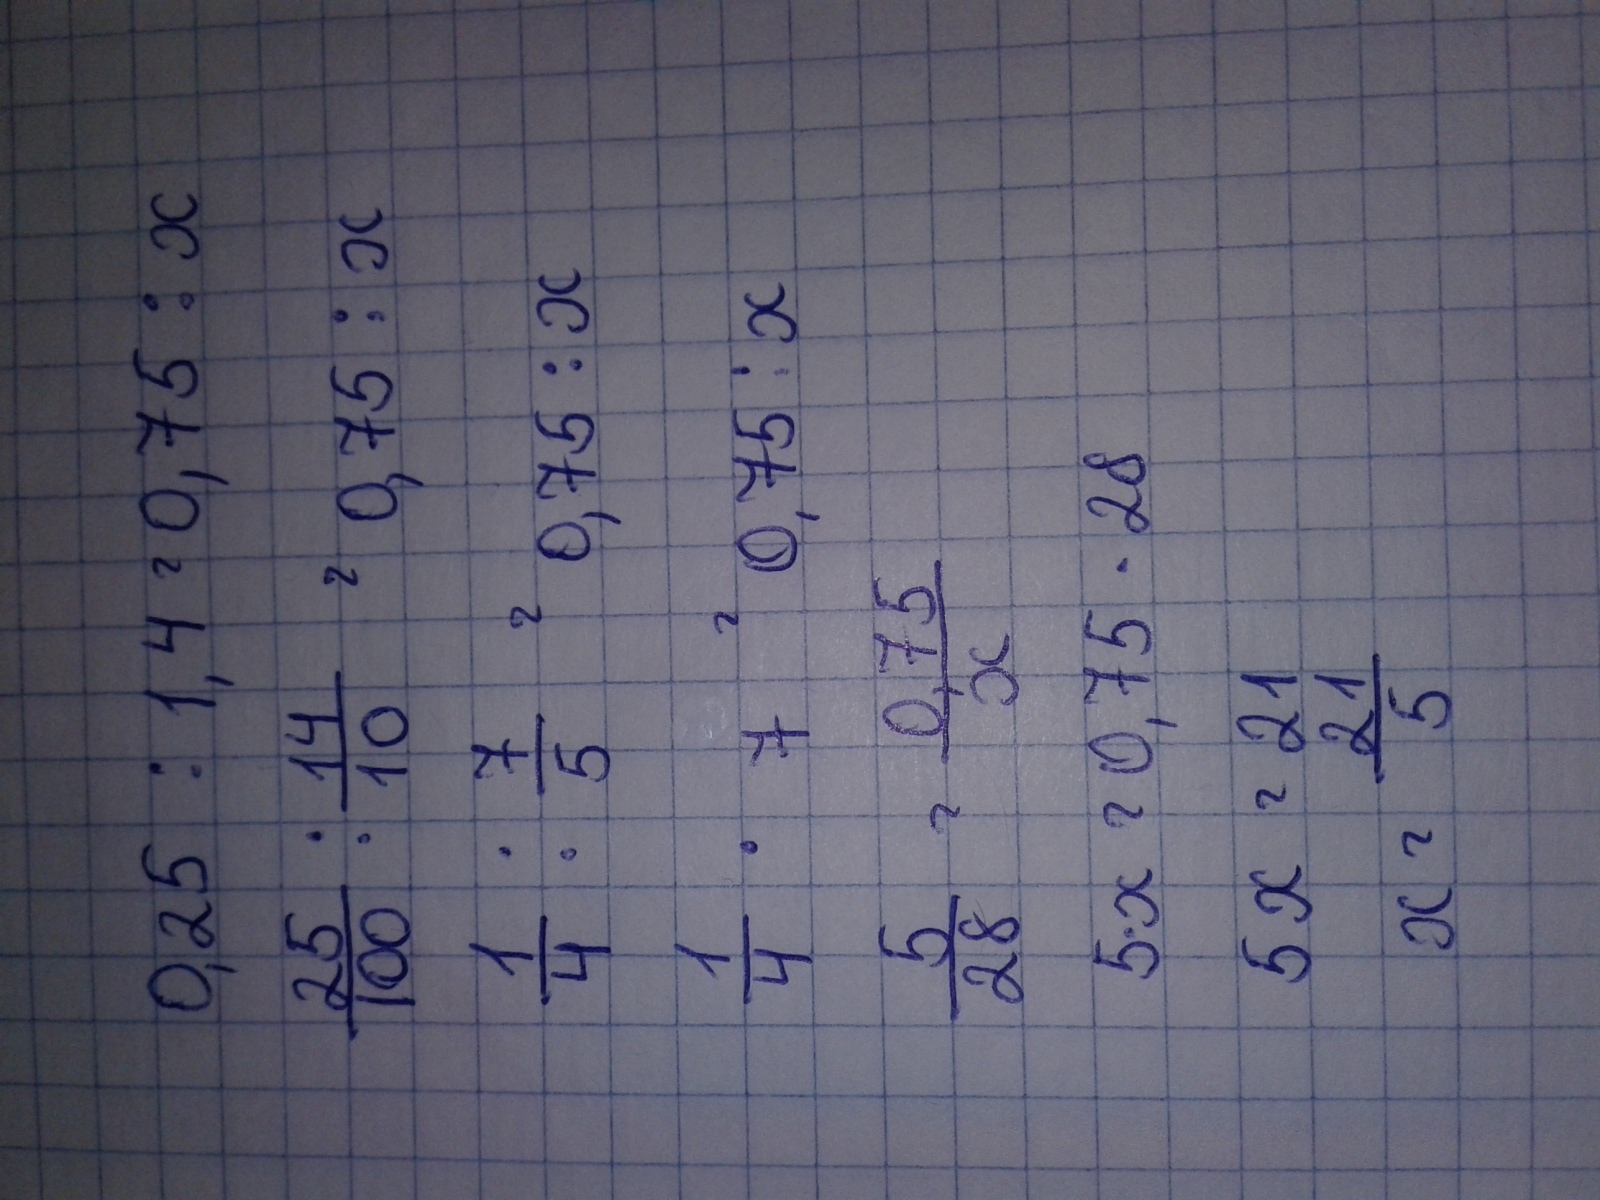 0,25 : 1,4 = 0,75 : x
25/100 : 14/10 = 0,75 : x
1/4 : 7/5 = 0,75 : x
1/4 · 7 = 0,75 : x
5/28 = 0,75/x
5·x = 0,75 · 28
5x = 21
x = 21/5